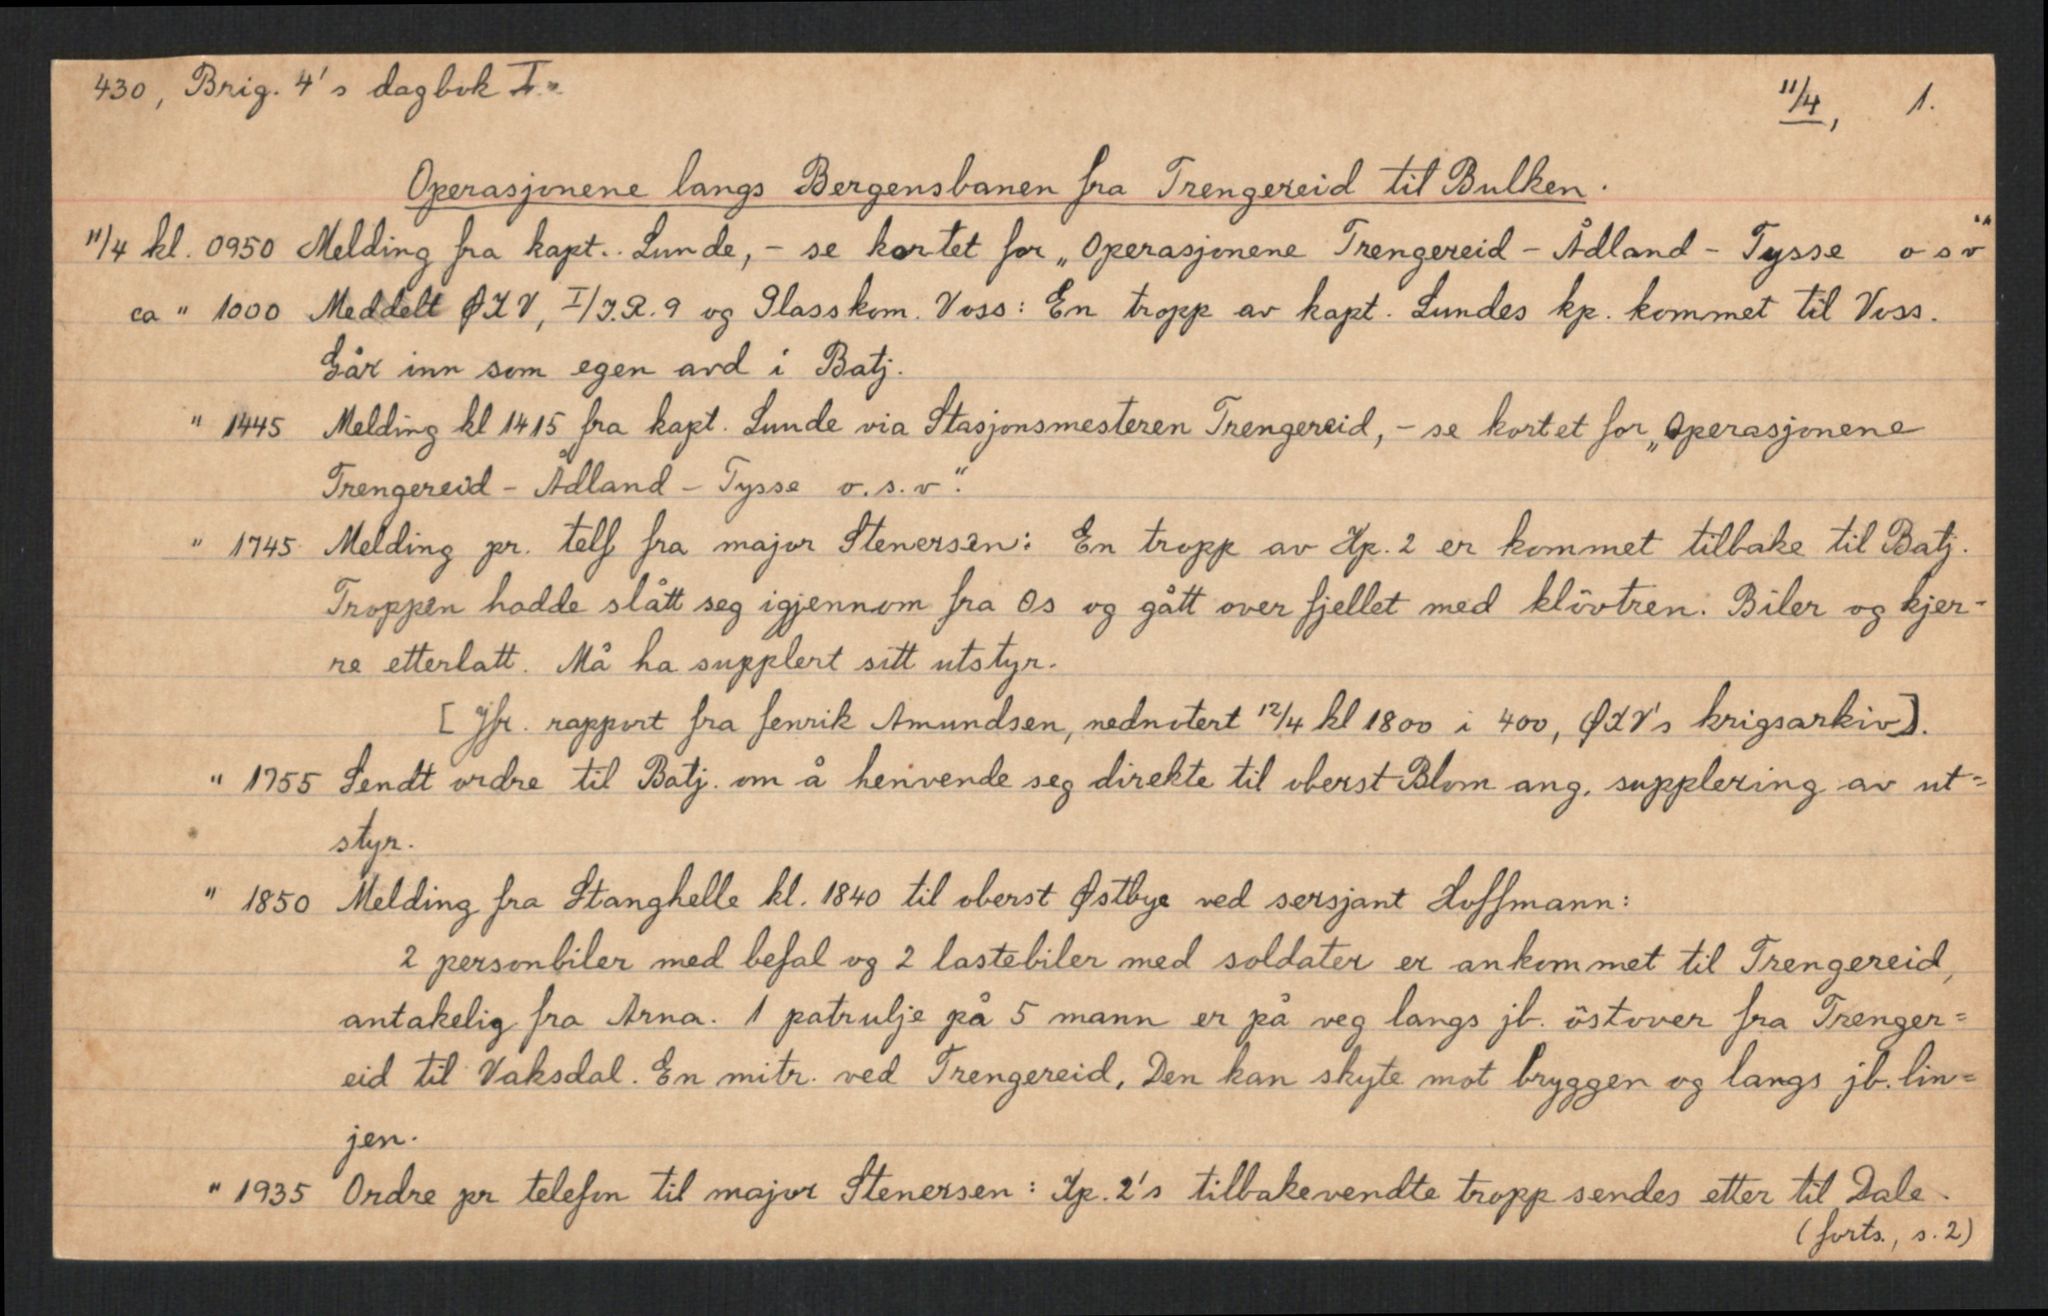 430, Brig. 4's dagbok I.
11/4, 1.
Operasjonene langs Bergensbanen fra Trengereid til Bulken.
11/4 kl. 0950 Melding fra kapt. Lunde, - se kortet for „Operasjonene Trengereid - Ådland - Tysse o s v"
ca " 1000 Meddelt ØKV, I/J.R. 9 og Plasskom. Voss: En tropp av kapt. Lundes kp. kommet til Voss.
Går inn som egen avd i Batj.
" 1445 Melding kl 1415 fra kapt. Lunde via Stasjonsmesteren Trengereid, - se kortet for „Operasjonene
Trengereid - Ådland - Tysse o.s.v".
" 1745 Melding pr. telf fra major Stenersen: En tropp av Kp. 2 er kommet tilbake til Batj.
Troppen hadde slått seg igjennom fra Os og gått over fjellet med klövtren. Biler og kjer-
re etterlatt. Må ha supplert sitt utstyr.
[Jfr. rapport fra fenrik Amundsen, nednotert 12/4 kl 1800 i 400, ØKV's krigsarkiv].
" 1755 Sendt ordre til Batj. om å henvende seg direkte til oberst Blom ang. supplering av ut=
styr.
" 1850 Melding fra Stanghelle kl. 1840 til oberst Østbye ved sersjant Hoffmann:
2 personbiler med befal og 2 lastebiler med soldater er ankommet til Trengereid,
antakelig fra Arna. 1 patrulje på 5 mann er på veg langs jb. östover fra Trenger=
eid til Vaksdal. En mitr. ved Trengereid. Den kan skyte mot bryggen og langs jb. lin=
jen.
" 1935 Ordre pr telefon til major Stenersen: Kp. 2's tilbakevendte tropp sendes etter til Dale.
(forts., s. 2)